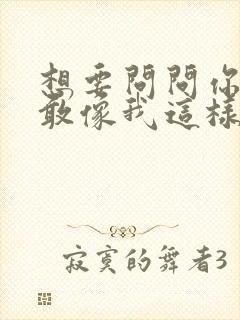 想要問問你
敢像我這樣
寂寞的舞者3